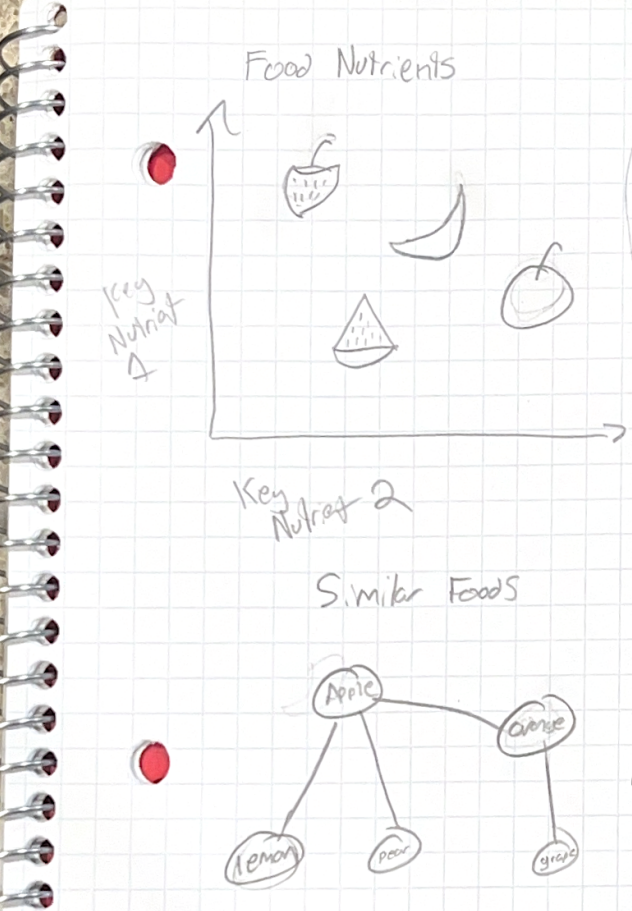 Food Nutrients
Key
Nutriet
1
Key
Nutriet 2
Similar Foods
Apple
orange
lemon
pear
grape